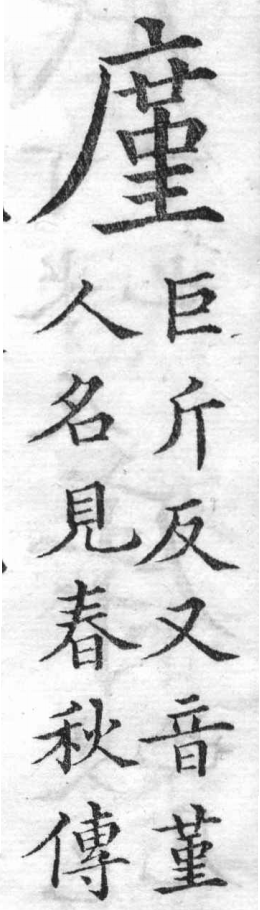 廑
巨斤反又音菫
人名見春秋傳